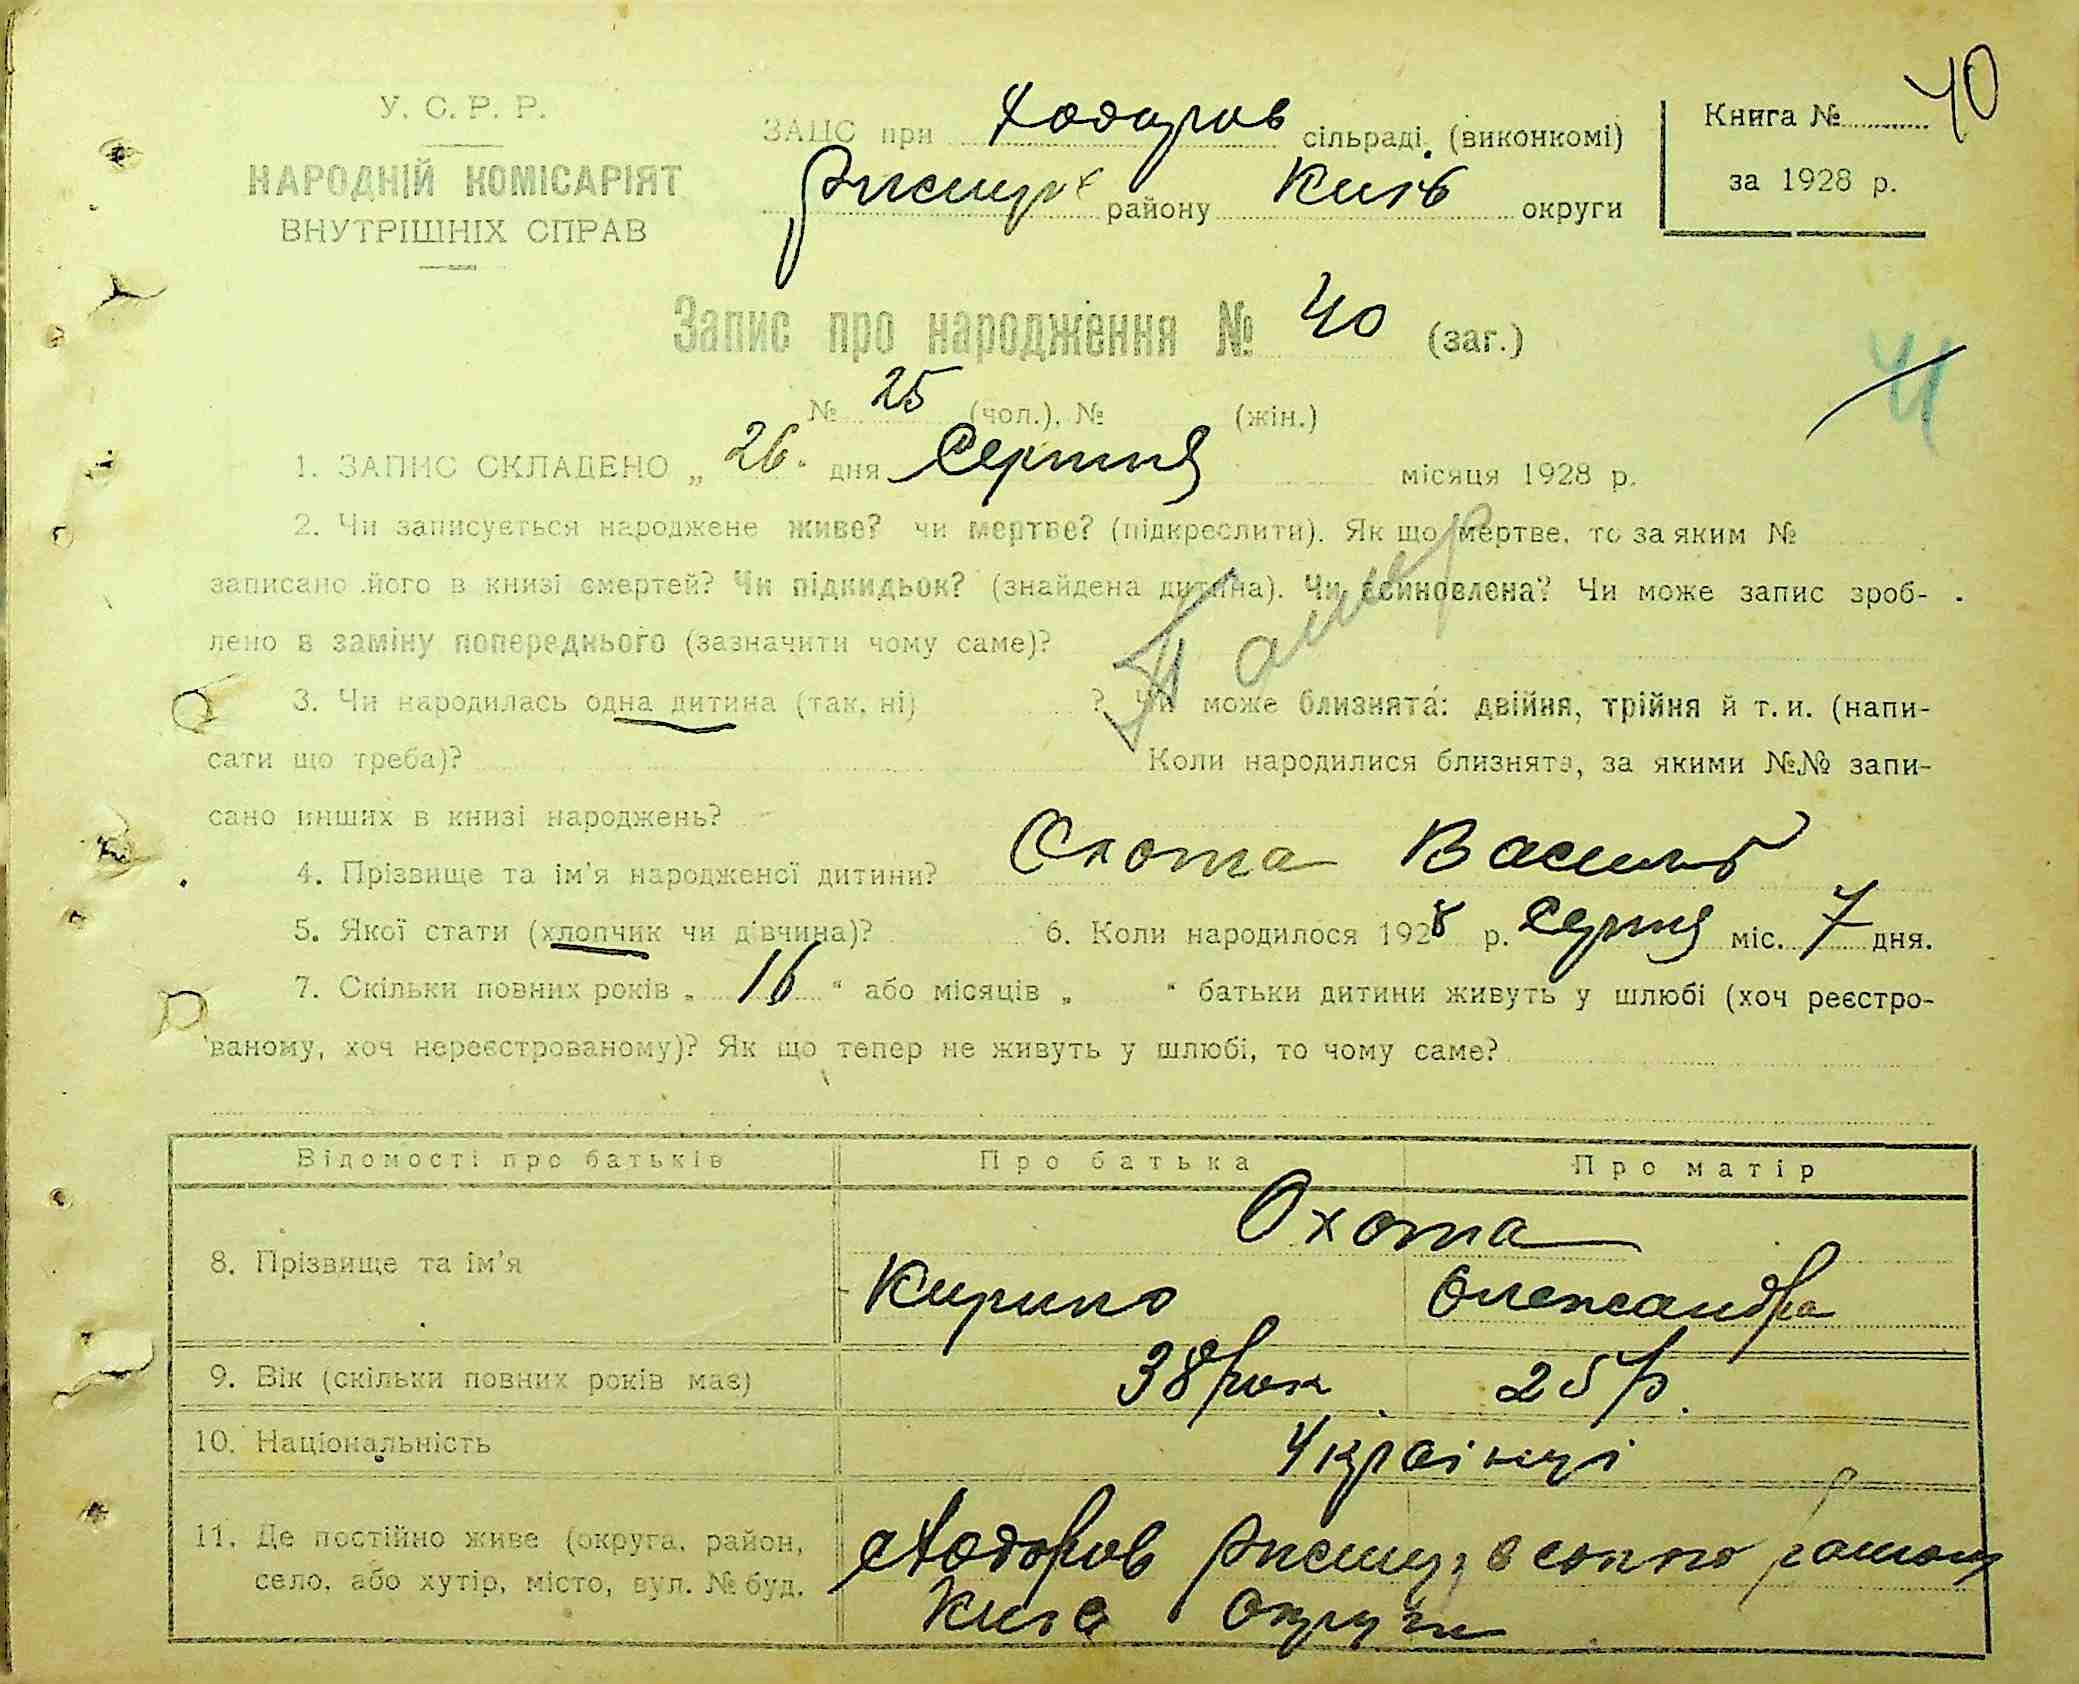 У. С. Р. Р.
НАРОДНІЙ КОМІСАРІЯТ
ВНУТРІШНІХ СПРАВ
ЗАПС при Ходорів сільраді (виконкомі)
району Київ округи
Книга № 40
за 1928 р.
Запис про народження № 40 (заг.)
41
№ 25 (чол.), № (жін.)
1. ЗАПИС СКЛАДЕНО „ 26 " дня Серпня місяця 1928 р.
2. Чи записується народжене живе? чи мертве? (підкреслити). Як що мертве, то за яким №
записано його в книзі смертей? Чи підкидьок? (знайдена дитина). Чи всиновлена? Чи може запис зроб-
лено в заміну попереднього (зазначити чому саме)?
3. Чи народилась одна дитина (так, ні) ? Чи може близнята: двійня, трійня й т. и. (напи-
сати що треба)? Коли народилися близнята, за якими №№ запи-
сано инших в книзі народжень?
4. Прізвище та ім'я народженої дитини? Охота Василь
5. Якої стати (хлопчик чи дівчина)? 6. Коли народилося 1928 р. Серпня міс. 7 дня.
7. Скільки повних років „ 16 " або місяців „ " батьки дитини живуть у шлюбі (хоч реєстро-
ваному, хоч нереєстрованому)? Як що тепер не живуть у шлюбі, то чому саме?
Відомості про батьків Про батька Про матір
8. Прізвище та ім'я Охота
Кирило Олександра
9. Вік (скільки повних років має) 38 рок 25 р.
10. Національність Українці
11. Де постійно живе (округа, район,
село, або хутір, місто, вул. № буд. Ходорів
Київ округи